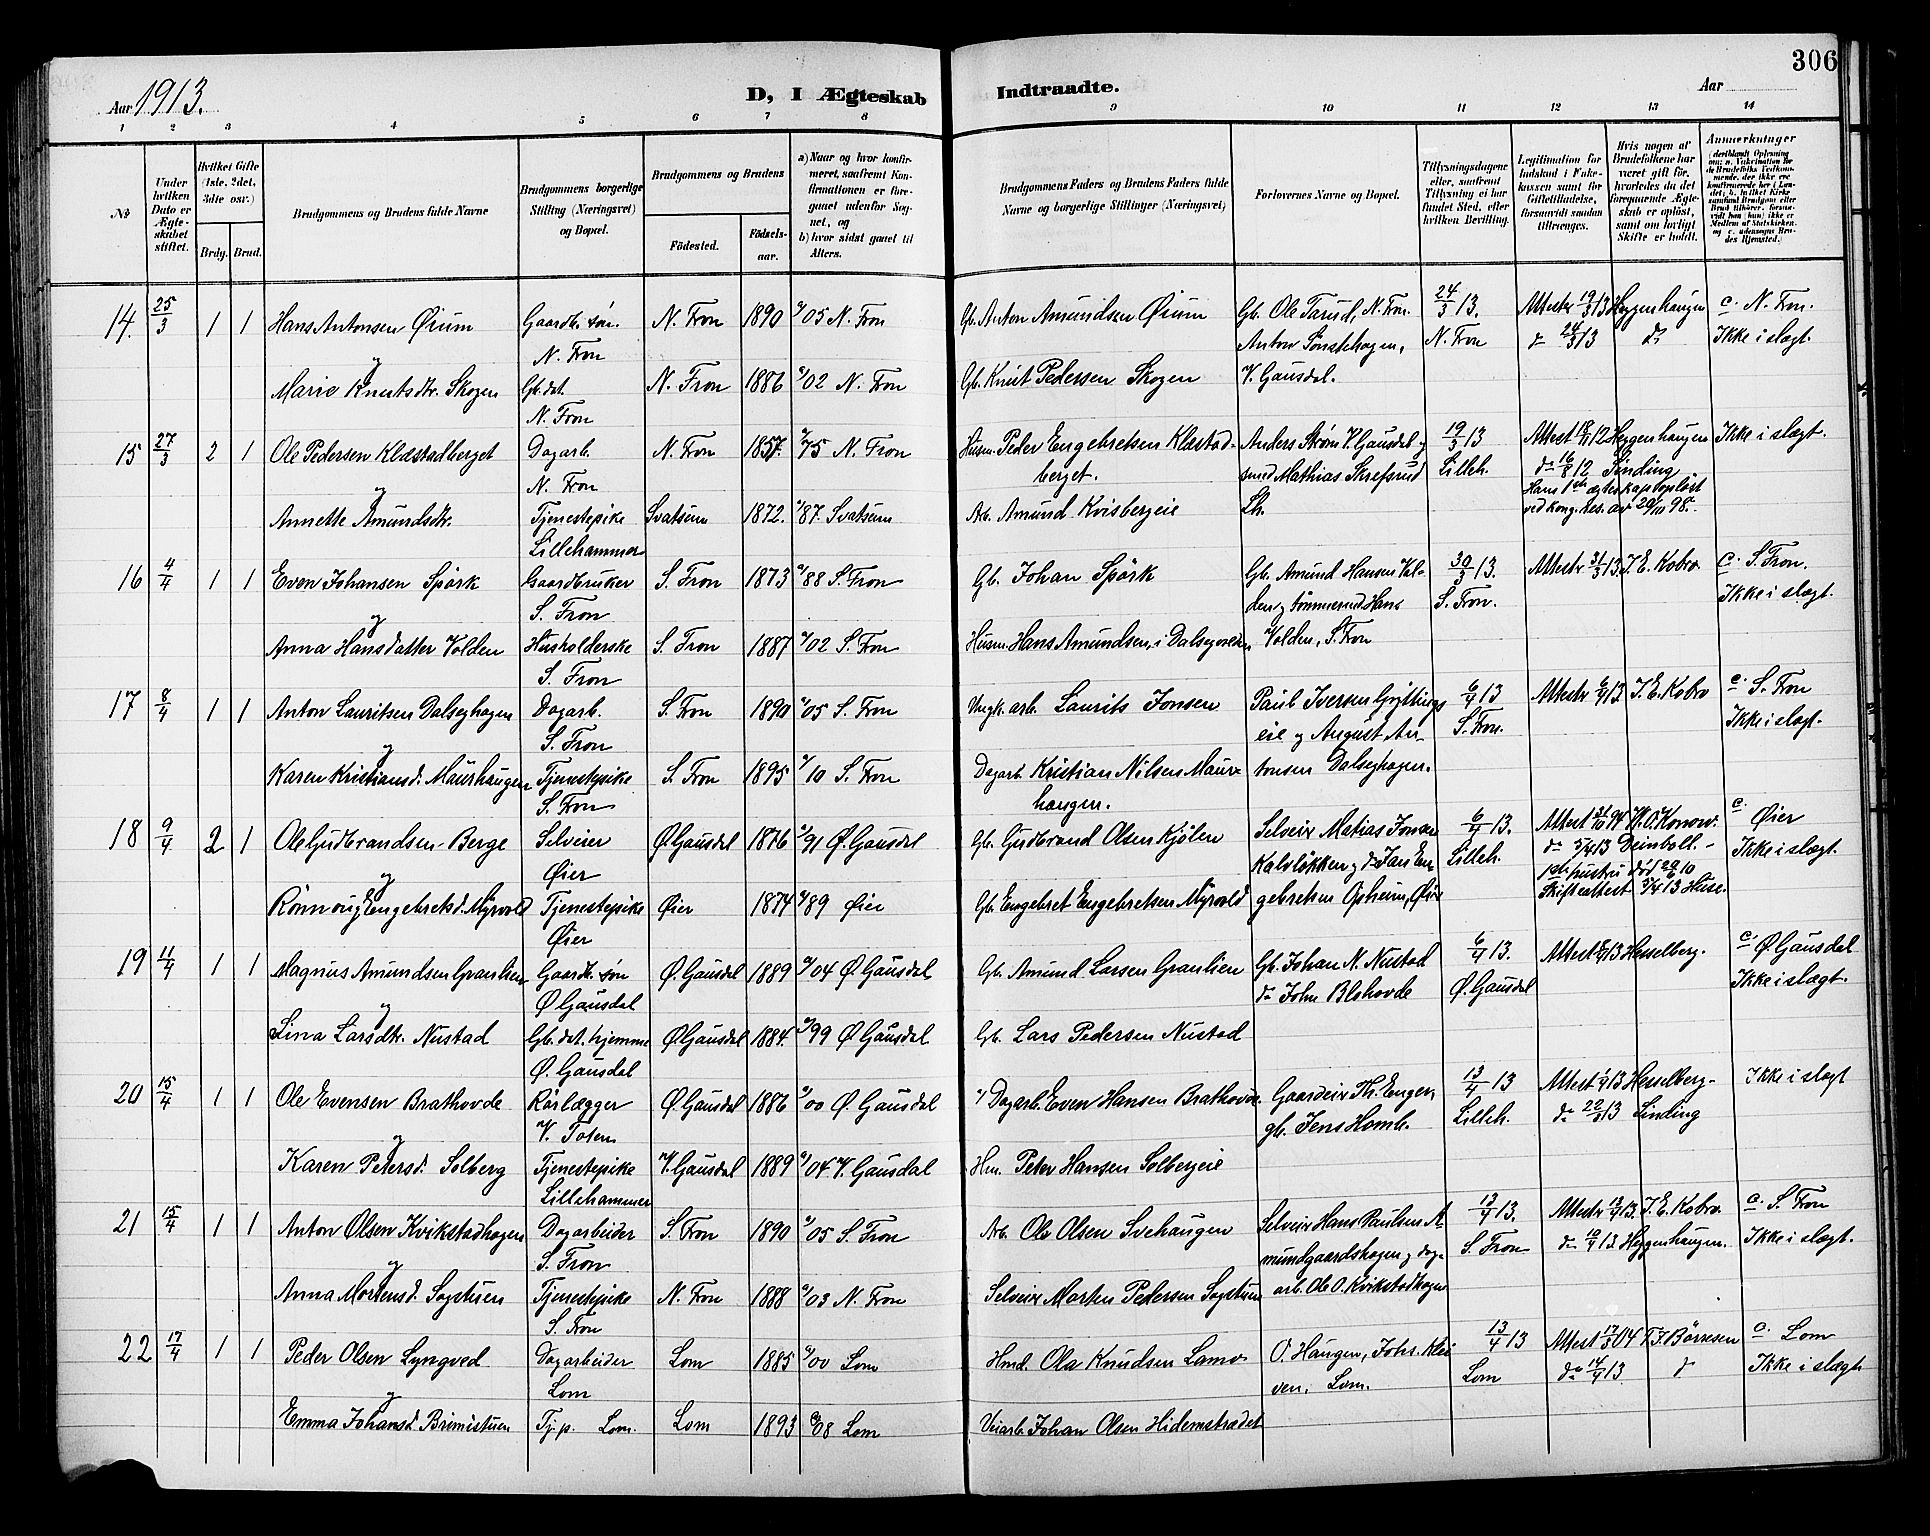 306
Aar 1913.
D, I Ægteskab Indtraadte.
Aar
1 2 3 4 5 6 7 8 9 10 11 12 13 14
№
Under hvilken Dato er Ægteskabet stiftet.
Hvilket Gifte (1ste, 2det, 3dte osv.)
Brdg. Brud.
Brudgommens og Brudens fulde Navne
Brudgommens borgerlige Stilling (Næringsvei) og Bopæl.
Brudgommens og Brudens
Födested.
Födselsaar.
a) Naar og hvor konfirmeret, saafremt Konfirmationen er foregaaet udenfor Sognet, og
b) hvor sidst gaaet til Alters.
Brudgommens Faders og Brudens Faders fulde Navne og borgerlige Stillinger (Næringsvei)
Forlovernes Navne og Bopæl.
Tillysningsdagene eller, saafremt Tillysning ei har fundet Sted, efter hvilken Bevilling.
Legitimation for Indskud i Enkekassen samt for Giftetilladelse, forsaavidt saadan tiltrænges.
Hvis nogen af Brudefolkene har været gift før, hvorledes da det foregaaende Ægteskab er opløst, samt om lovligt Skifte er holdt.
Anmerkninger
14. 25/3 1 1 Hans Antonsen Øium Gaardbr. søn. N. Fron N. Fron 1890 05 N. Fron Gb. Anton Amundsen Øium Gb. Ole Tarud, N. Fron. 24/3 13. Attestr 19/3 13 Heggenhaugen c. N. Fron.
Anton Sønstehagen, N. Fron d 24/3 13 do Ikke i slægt.
y
Marie Knutsdtr. Skogen Gb. dat. N. Fron N. Fron 1886 02 N. Fron Gb. Knut Pedersen Skogen V. Gausdal.
15 27/3 2 1 Ole Pedersen Klæstadberget Dagarb. N. Fron N. Fron 1857. 75 N. Fron Husm. Peder Engebretsen Klæstadberget. Anders Strøm V. Gausdal og smed Mathias Skrefsrud Lh. 19/3 13 Lilleh. Attest 12 Heggenhaugen Ikke i slægt.
do 16/8 12 Sinding
Hans 1ste ægteskap opløst ved kong. Res. av 98.
y
Annette Amundsdtr. Tjenestepike Lillehammer Svatsum 1872. 87. Svatsum Arb. Amund Kvisbergeie
16 4/4 1 1 Even Johansen Spørk Gaardbruker S. Fron S. Fron 1873 88 S. Fron Gb. Johan Spørk Gb. Amund Hansen Volden og tømmermd. Hans Volden, S. Fron 30/3 13. S. Fron. Attestr 31/3 13. J. E. Kobro c. S. Fron. Ikke i slægt.
y
Anna Hansdatter Volden Husholderske S. Fron S. Fron 1887 02 S. Fron Husm. Hans Amundsen, i Dalsegvolden
17 8/4 1 1 Anton Lauritsen Dalseghagen Dagarb. S. Fron S. Fron 1890 05 S. Fron Ungk. arb. Laurits Jonsen Paul Iversen Gryttingseie og August Antonsen Dalseghagen. 6/4 13 S. Fron. Attestr 6/4 13. J. E. Kobro c. S. Fron Ikke i slægt.
y
Karen Kristiansd. Maurhaugen Tjenestepike S. Fron S. Fron 1895 10 S. Fron Dagarb. Kristian Nilsen Maurhaugen.
18 9/4 2 1 Ole Gudbrandsen Berge Selveier Øier Ø. Gausdal 1876 91 Ø. Gausdal Gb. Gudbrand Olsen Kjølen Selveier Matias Jonsen Kalvløkken og do Jan Engebretsen Opheim, Øier 6/4 13. Lilleh. Attest W. O. Konow. c. Øier
do 5/4 13 Deinboll. Ikke i slægt.
1ste hustru død 10
Skifteattest 5/4 13 Huse.
y
Rønnoug Engebretsd. Myrvold Tjenestepike Øier Øier 1874 89 Øier Gb. Engebret Engebretsen Myrvold
19 11/4 1 1 Magnus Amundsen Granlien Gaardb. søn Ø. Gausdal Ø. Gausdal 1889 04 Ø. Gausdal Gb. Amund Larsen Granlien Gb. Johan N. Nustad do John Blshovde 6/4 13. Ø. Gausdal Attest 13 Hesselberg. c. Ø. Gausdal Ikke i slægt.
y
Lina Larsdtr. Nustad Gb. dat. hjemme Ø. Gausdal Ø. Gausdal 1884. 99 Ø. Gausdal Gb. Lars Pedersen Nustad
20 15/4 1 1 Ole Evensen Brathovde Rørlægger V. Toten Ø. Gausdal 1886 00 Ø. Gausdal Dagarb. Even Hansen Brathovde Gaardeier Th. Engen, gb. Jens Homb. 13/4 13 Lilleh. Attest 13 Hesselberg Ikke i slægt
do 13 Sinding
y
Karen Petersd. Solberg Tjenestepike Lillehammer V. Gausdal 1889 04 V. Gausdal Hm. Peter Hansen Solbergeie
21 15/4 1 1 Anton Olsen Kvikstadhagen Dagarbeider S. Fron S. Fron 1890 05 S. Fron Arb. Ole Olsen Svehaugen Selveier Hans Paulsen Amundgaardshagen og dagarb. Ole O. Kvikstadhagen 13/4 13. S. Fron Attestr 13. J. E. Kobro. c. S. Fron
do 13. Heggenhaugen. Ikke i slægt.
y
Anna Mortensd. Sagstuen Tjenestepike S. Fron N. Fron 1888 03 N. Fron Selveier Morten Pedersen Sagstuen
22 17/4 1 1 Peder Olsen Lyngved Dagarbeider Lom Lom 1885 00 Lom Hmd. Ola Knudsen Lamo O. Haugen, Johs. Kleiven, Lom. 13/4 13 Lom Attest 04 T. F. Børresen c. Lom
do 14/4 13. d Ikke i slægt
y
Emma Johansd. Brimistuen Tj. p. Lom. Lom 1893 08 Lom Veiarb. Johan Olsen Hidemstrædet